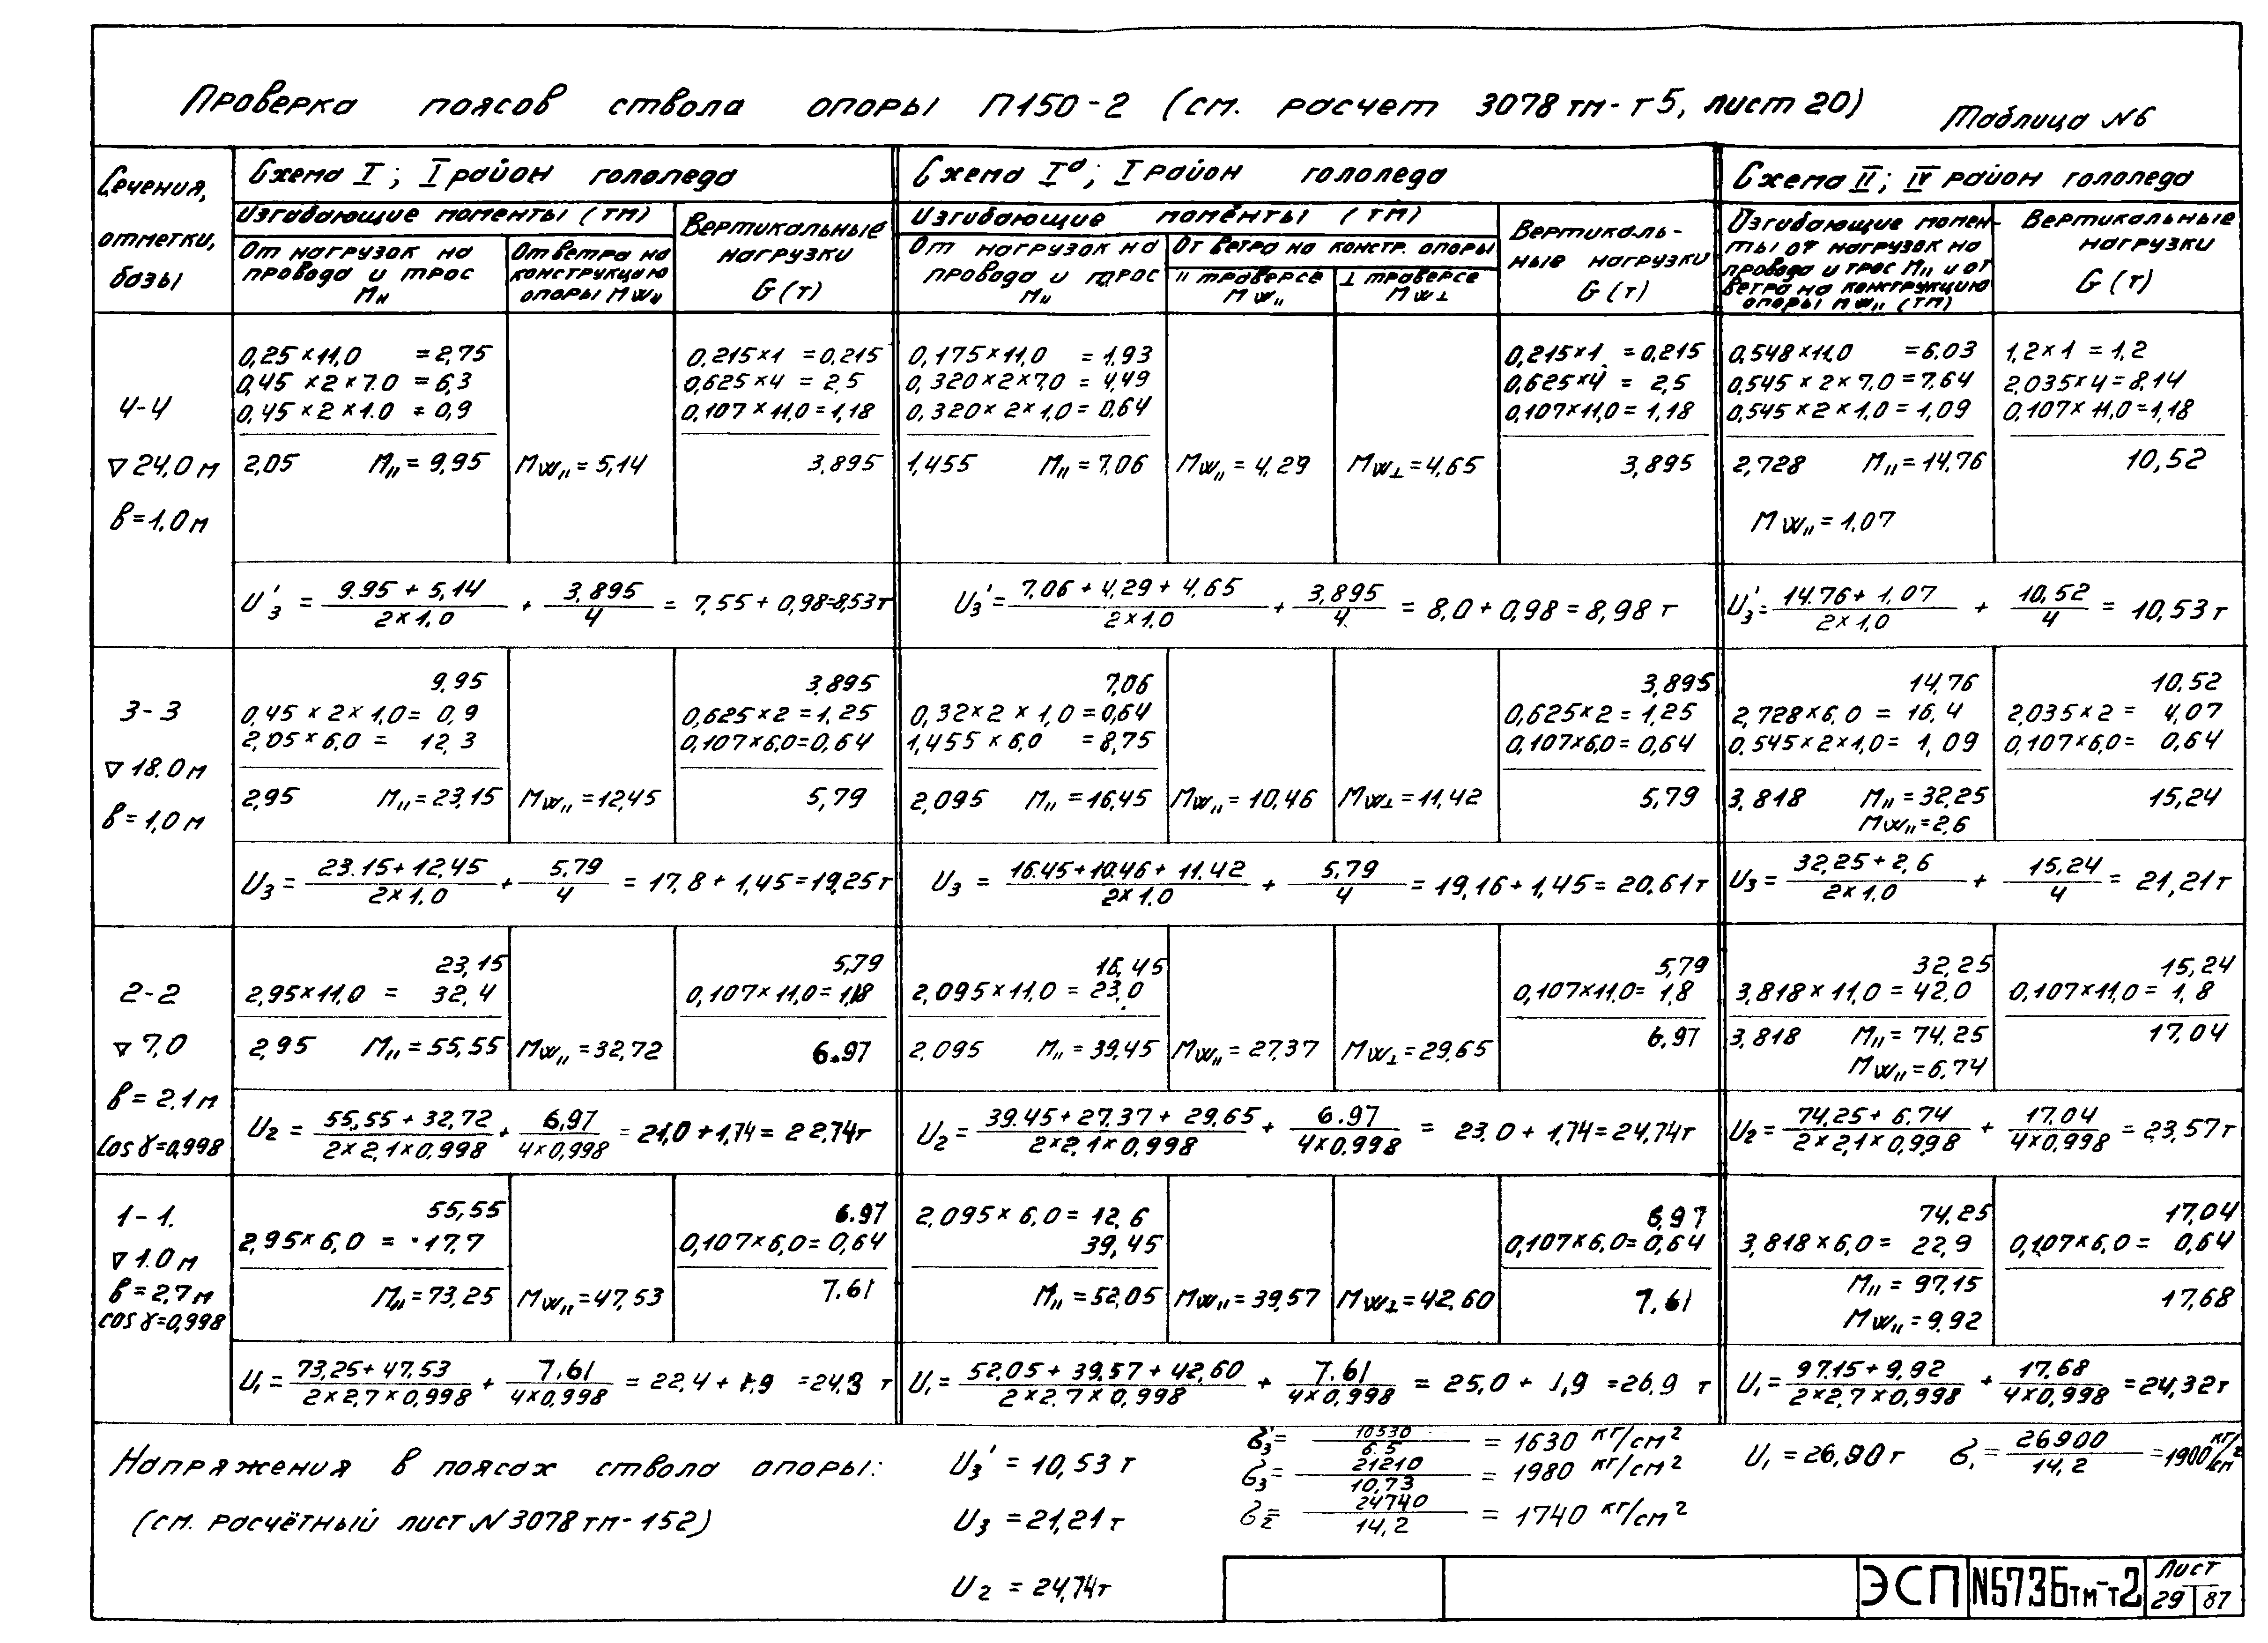 Проверка поясов ствола опоры П150-2 (см. расчет 3078тм-т5, лист 20)
Таблица №6
Сечения, отметки, базы
Схема I; I район гололеда
Изгибающие моменты (тм)
От нагрузок на провода и трос М॥
От ветра на конструкцию опоры Мw॥
Вертикальные нагрузки G (т)
Схема Iа; I район гололеда
Изгибающие моменты (тм)
От нагрузок на провода и трос М॥
От ветра на констр. опоры
॥ траверсе Мw॥
⊥ траверсе Мw⊥
Вертикаль-
ные нагрузки
G (т)
Схема II; IV район гололеда
Изгибающие момен-
ты от нагрузок на
провода и трос М॥ и от
ветра на конструкцию
опоры Мw॥ (тм)
Вертикальные
нагрузки
G (т)
4-4
▽24,0 м
в=1.0м
0,25×11,0 =2,75
0,45×2×7.0 = 6,3
0,45×2×1.0 = 0,9
2,05 М॥= 9,95
Мw॥= 5,14
0,215×1 =0,215
0,625×4 = 2,5
0,107×11,0=1,18
3,895
0,175×11,0 = 1,93
0,320×2×7,0 = 4,49
0,320×2×1,0= 0,64
1,455 М॥ = 7,06
Мw॥= 4,29
Мw⊥=4,65
0,215×1 =0,215
0,625×4 = 2,5
0,107×11,0= 1,18
3,895
0,548×11,0 =6.03
0,545×2×7,0 =7,64
0,545×2×1,0= 1,09
2,728 М॥=14,76
Мw॥= 1,07
1,2×1 = 1,2
2,035×4=8,14
0,107×11,0=1,18
10,52
U₃' = (9.95 + 5,14)/(2×1,0) + 3,895/4 = 7,55+0,98=8,53т
U₃' = (7.06+4,29+4,65)/(2×1.0) + 3,895/4 = 8,0+0,98=8,98 т
U₃' = (14.76+1,07)/(2×1,0) + 10,52/4 = 10,53т
3-3
▽18.0м
в=1,0м
9,95
0,45×2×1,0= 0,9
2,05×6,0 = 12,3
2,95 М॥=23,15
Мw॥=12,45
3,895
0,625×2=1,25
0,107×6,0=0,64
5,79
7,06
0,32×2×1,0=0,64
1,455×6,0 =8,75
2,095 М॥=16,45
Мw॥=10,46
Мw⊥=11,42
3,895
0,625×2=1,25
0,107×6,0=0,64
5,79
14,76
2,728×6,0 = 16,4
0,545×2×1,0= 1,09
3,818 М॥=32,25
Мw॥=2,6
10,52
2,035×2= 4,07
0,107×6,0= 0,64
15,24
U₃= (23.15+12,45)/(2×1.0) + 5,79/4 = 17,8+1,45=19,25т
U₃ = (16.45+10.46+11.42)/(2×1.0) + 5,79/4 = 19,16+1,45=20,61т
U₃= (32,25+2,6)/(2×1.0) + 15,24/4 = 21,21т
2-2
▽7,0
в=2,1м
cosγ=0,998
23,15
2,95×11,0 = 32,4
2,95 М॥=55,55
Мw॥=32,72
5,79
0,107×11,0=1,18
6.97
16,45
2,095×11,0 = 23,0
2,095 М॥=39,45
Мw॥=27,37
Мw⊥=29,65
5,79
0,107×11,0= 1,8
6,97
32,25
3,818×11,0=42,0
3,818 М॥= 74,25
Мw॥=6,74
15,24
0,107×11,0= 1,8
17,04
U₂ = (55,55+32,72)/(2×2,1×0,998) + 6,97/(4×0,998) = 21,0+1,74= 22,74т
U₂= (39.45+27,37+29,65)/(2×2,1×0,998) + 6.97/(4×0,998) = 23,0+1,74=24,74т
U₂= (74,25+6,74)/(2×2,1×0,998) + 17,04/(4×0,998) =23,57т
1-1.
▽1.0м
в=2,7м
cosγ=0,998
55,55
2,95×6,0 = 17,7
М॥=73,25
Мw॥=47,53
6.97
0,107×6,0=0,64
7.61
2,095×6,0=12,6
39,45
М॥=52,05
Мw॥=39,57
Мw⊥=42,60
6,97
0,107×6,0=0,64
7.61
74,25
3,818×6,0= 22,9
М॥= 97,15
Мw॥=9,92
17,04
0,107×6,0= 0,64
17,68
U₁= (73,25+47,53)/(2×2,7×0,998) + 7.61/(4×0,998) = 22,4+1,9 =24,3 т
U₁= (52,05+39,57+42,60)/(2×2.7×0,998) + 7.61/(4×0,998) = 25,0+1,9 =26.9 т
U₁= (97,15+9,92)/(2×2,7×0,998) + 17,68/(4×0,998) =24,32т
Напряжения в поясах ствола опоры:
(см. расчётный лист №3078тм-152)
U₃' = 10,53 т
U₃ =21,21т
U₂ = 24,74т
б₃'= 10530/6.5 = 1630 кг/см²
б₃= 21210/10,73 = 1980 кг/см²
б₂= 24740/14,2 = 1740 кг/см²
U₁=26,90т б₁= 26900/14,2 =1900 кг/см
ЭСП
N5736тм-т2
Лист
29 87